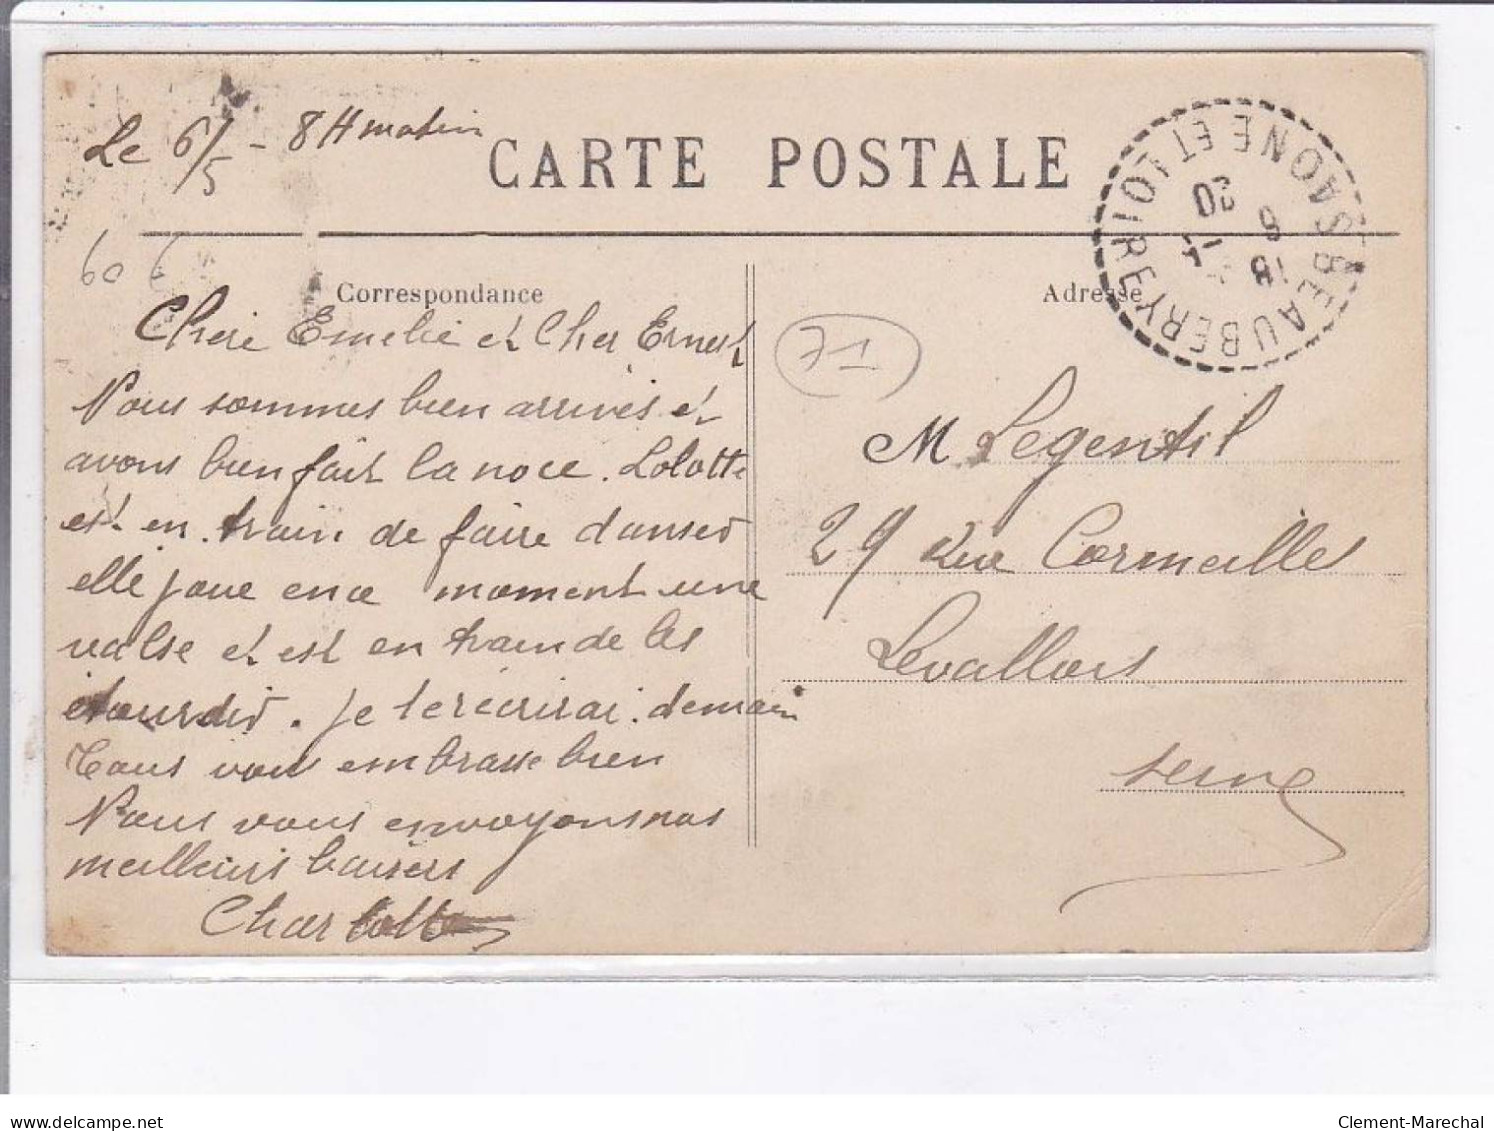 Le 6/5 - 8 H matin
CARTE POSTALE
BEAUBERY SAONE ET LOIRE
60 €
Correspondance
Adresse
Chère Emelie et Cher Ernest
Nous sommes bien arrivés et
avons bien fait la noce. Lolotte
est en train de faire danser
elle joue en ce moment une
valse et est en train de les
étourdir. Je te récrirai demain
Tous vous embrasse bien
Nous vous envoyons nos
meilleurs baisers
Charlotte
71
M Legentil
29 Rue Cormeilles
Levallois
Seine
delcampe.net
Clement-Marechal